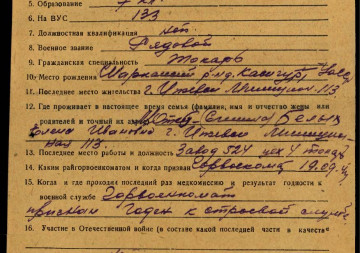 5. Образование 7 кл.
6. На ВУС 133
7. Должностная квалификация нет
8. Военное звание Рядовой
9. Гражданская специальность Токарь
10. Место рождения Шарканский р-н д.
11. Последнее место жительства г. Ижевск 113
12. Где проживает в настоящее время семья (фамилия, имя и отчество жены или
родителей и точный их адрес)
г. Ижевск
113.
13. Последнее место работы и должность Завод 524 цех 4 токарь
14. Каким райгорвоенкоматом и когда призван 19.09.
15. Когда и где проходил последний раз медкомиссию и результат годности к
военной службе Горвоенкомат
признан годен к строевой службе
16. Участие в Отечественной войне (в составе какой последней части в качестве